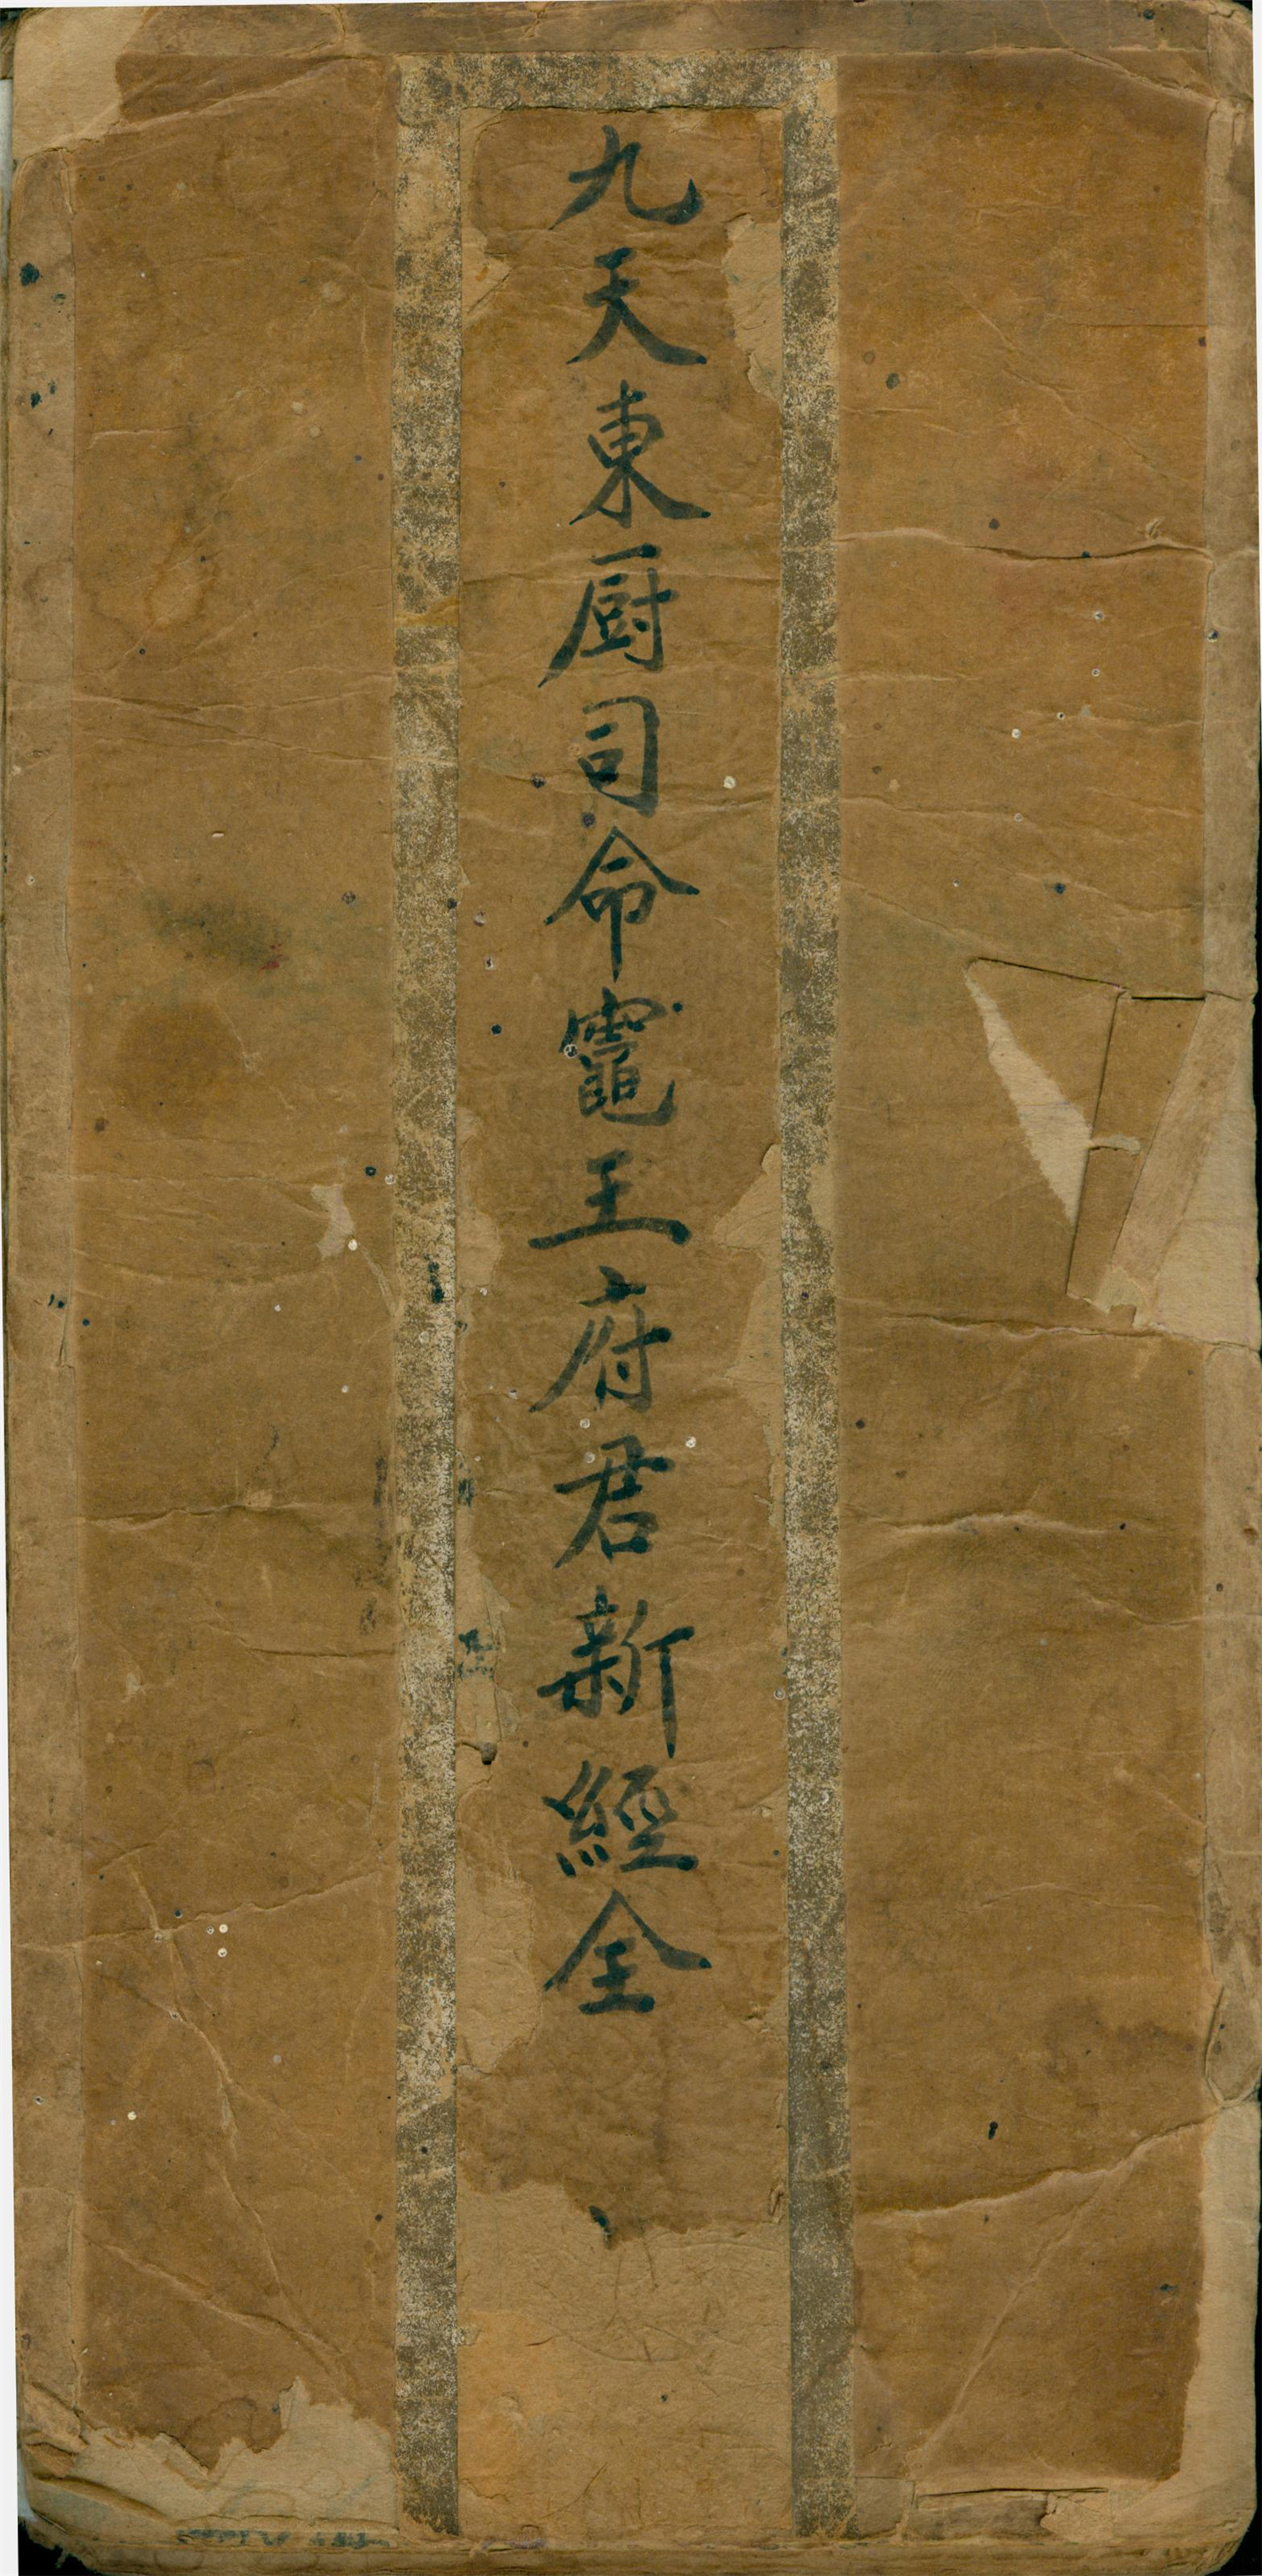 九天東厨司命竈王府君新經全